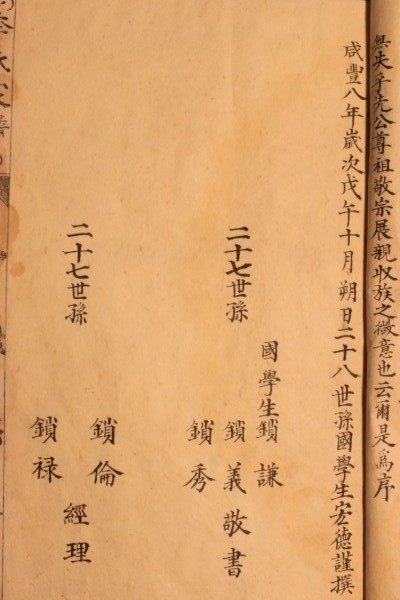 無失乎先公尊祖敬宗展親收族之微意也云爾是爲序
咸豐八年歲次戊午十月朔日二十八世孫國學生宏德謹撰
國學生鎖謙
二十七世孫 鎖義敬書
鎖秀
鎖倫
二十七世孫 經理
鎖禄